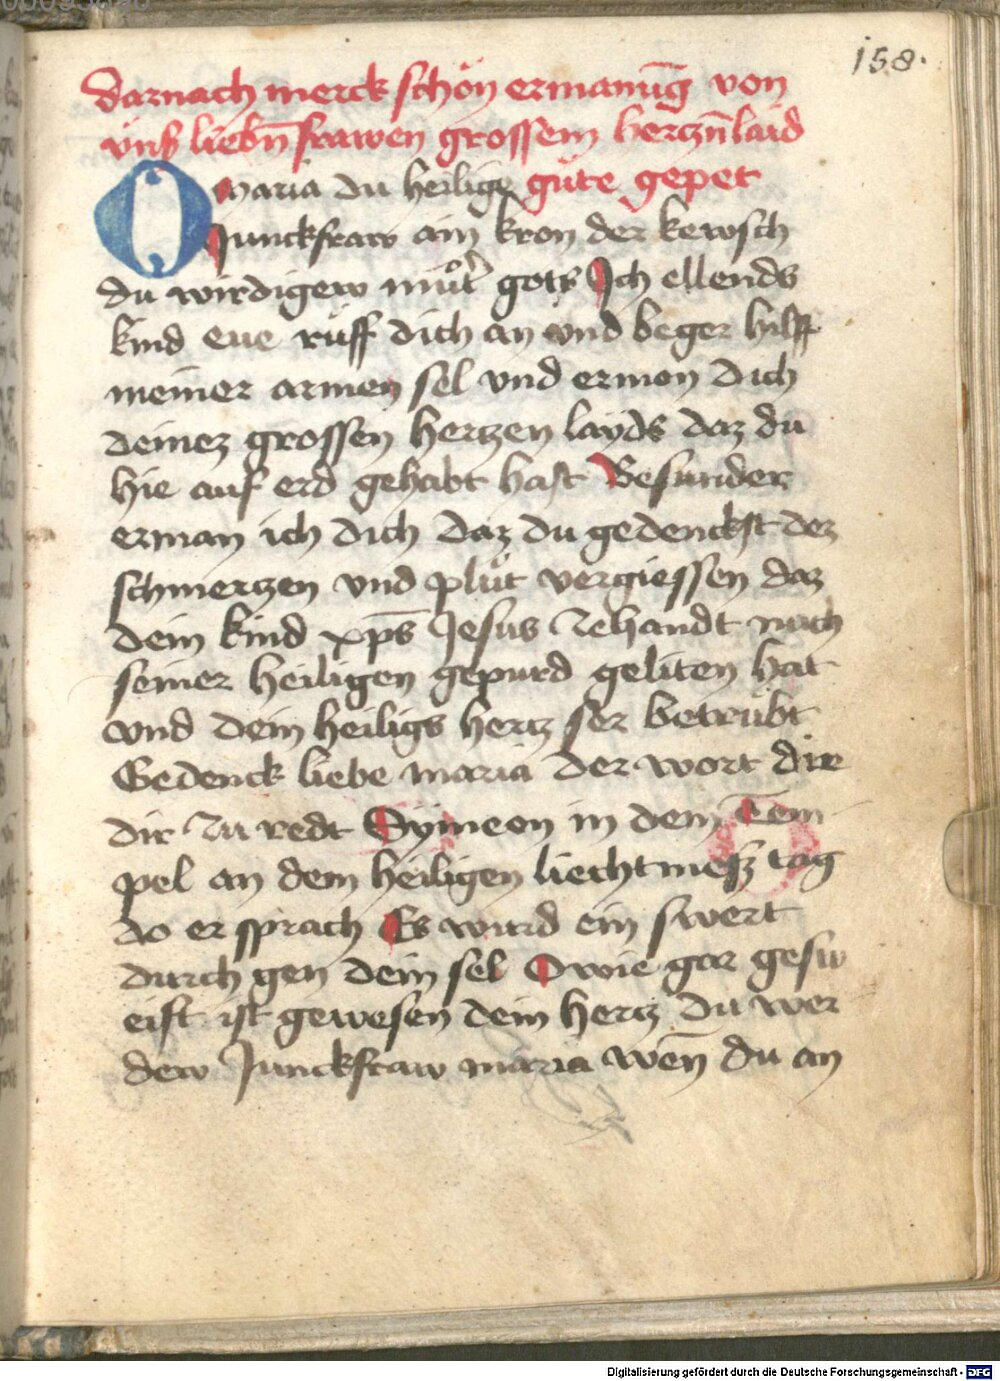 158.
darnach merck schön ermanūg von
vnß liebn̄ frawen grossem hertzn̄laid
O maria du heilige gůte gepet
Junckfraw ain kron der kewsch
du wirdigew můt̄ gots Ich ellends
kind eue rüff dich an vnd beger hilff
meiner armen sel vnd ermon dich
deinez grossen hertzen layds daz du
hie auf erd gehabt hast Besunder
erman ich dich daz du gedenckst dez
schmertzen vnd plůt vergiessen daz
dein kind xp̄s Jesus zehandt nach
seiner heiligen gepurd geliten hat
vnd dein heiligs hertz ser betrübt
Gedenck liebe maria der wort die
dir zu redt Symeon in dem Tem
pel an dem heiligen liechtmesz tag
do er sprach Es wurd ein swert
durch gen dein sel O wie gar gesw
eist ist gewesen dein hertz du wer
dew Junckfraw maria wen̄ du an
Digitalisierung gefördert durch die Deutsche Forschungsgemeinschaft - DFG